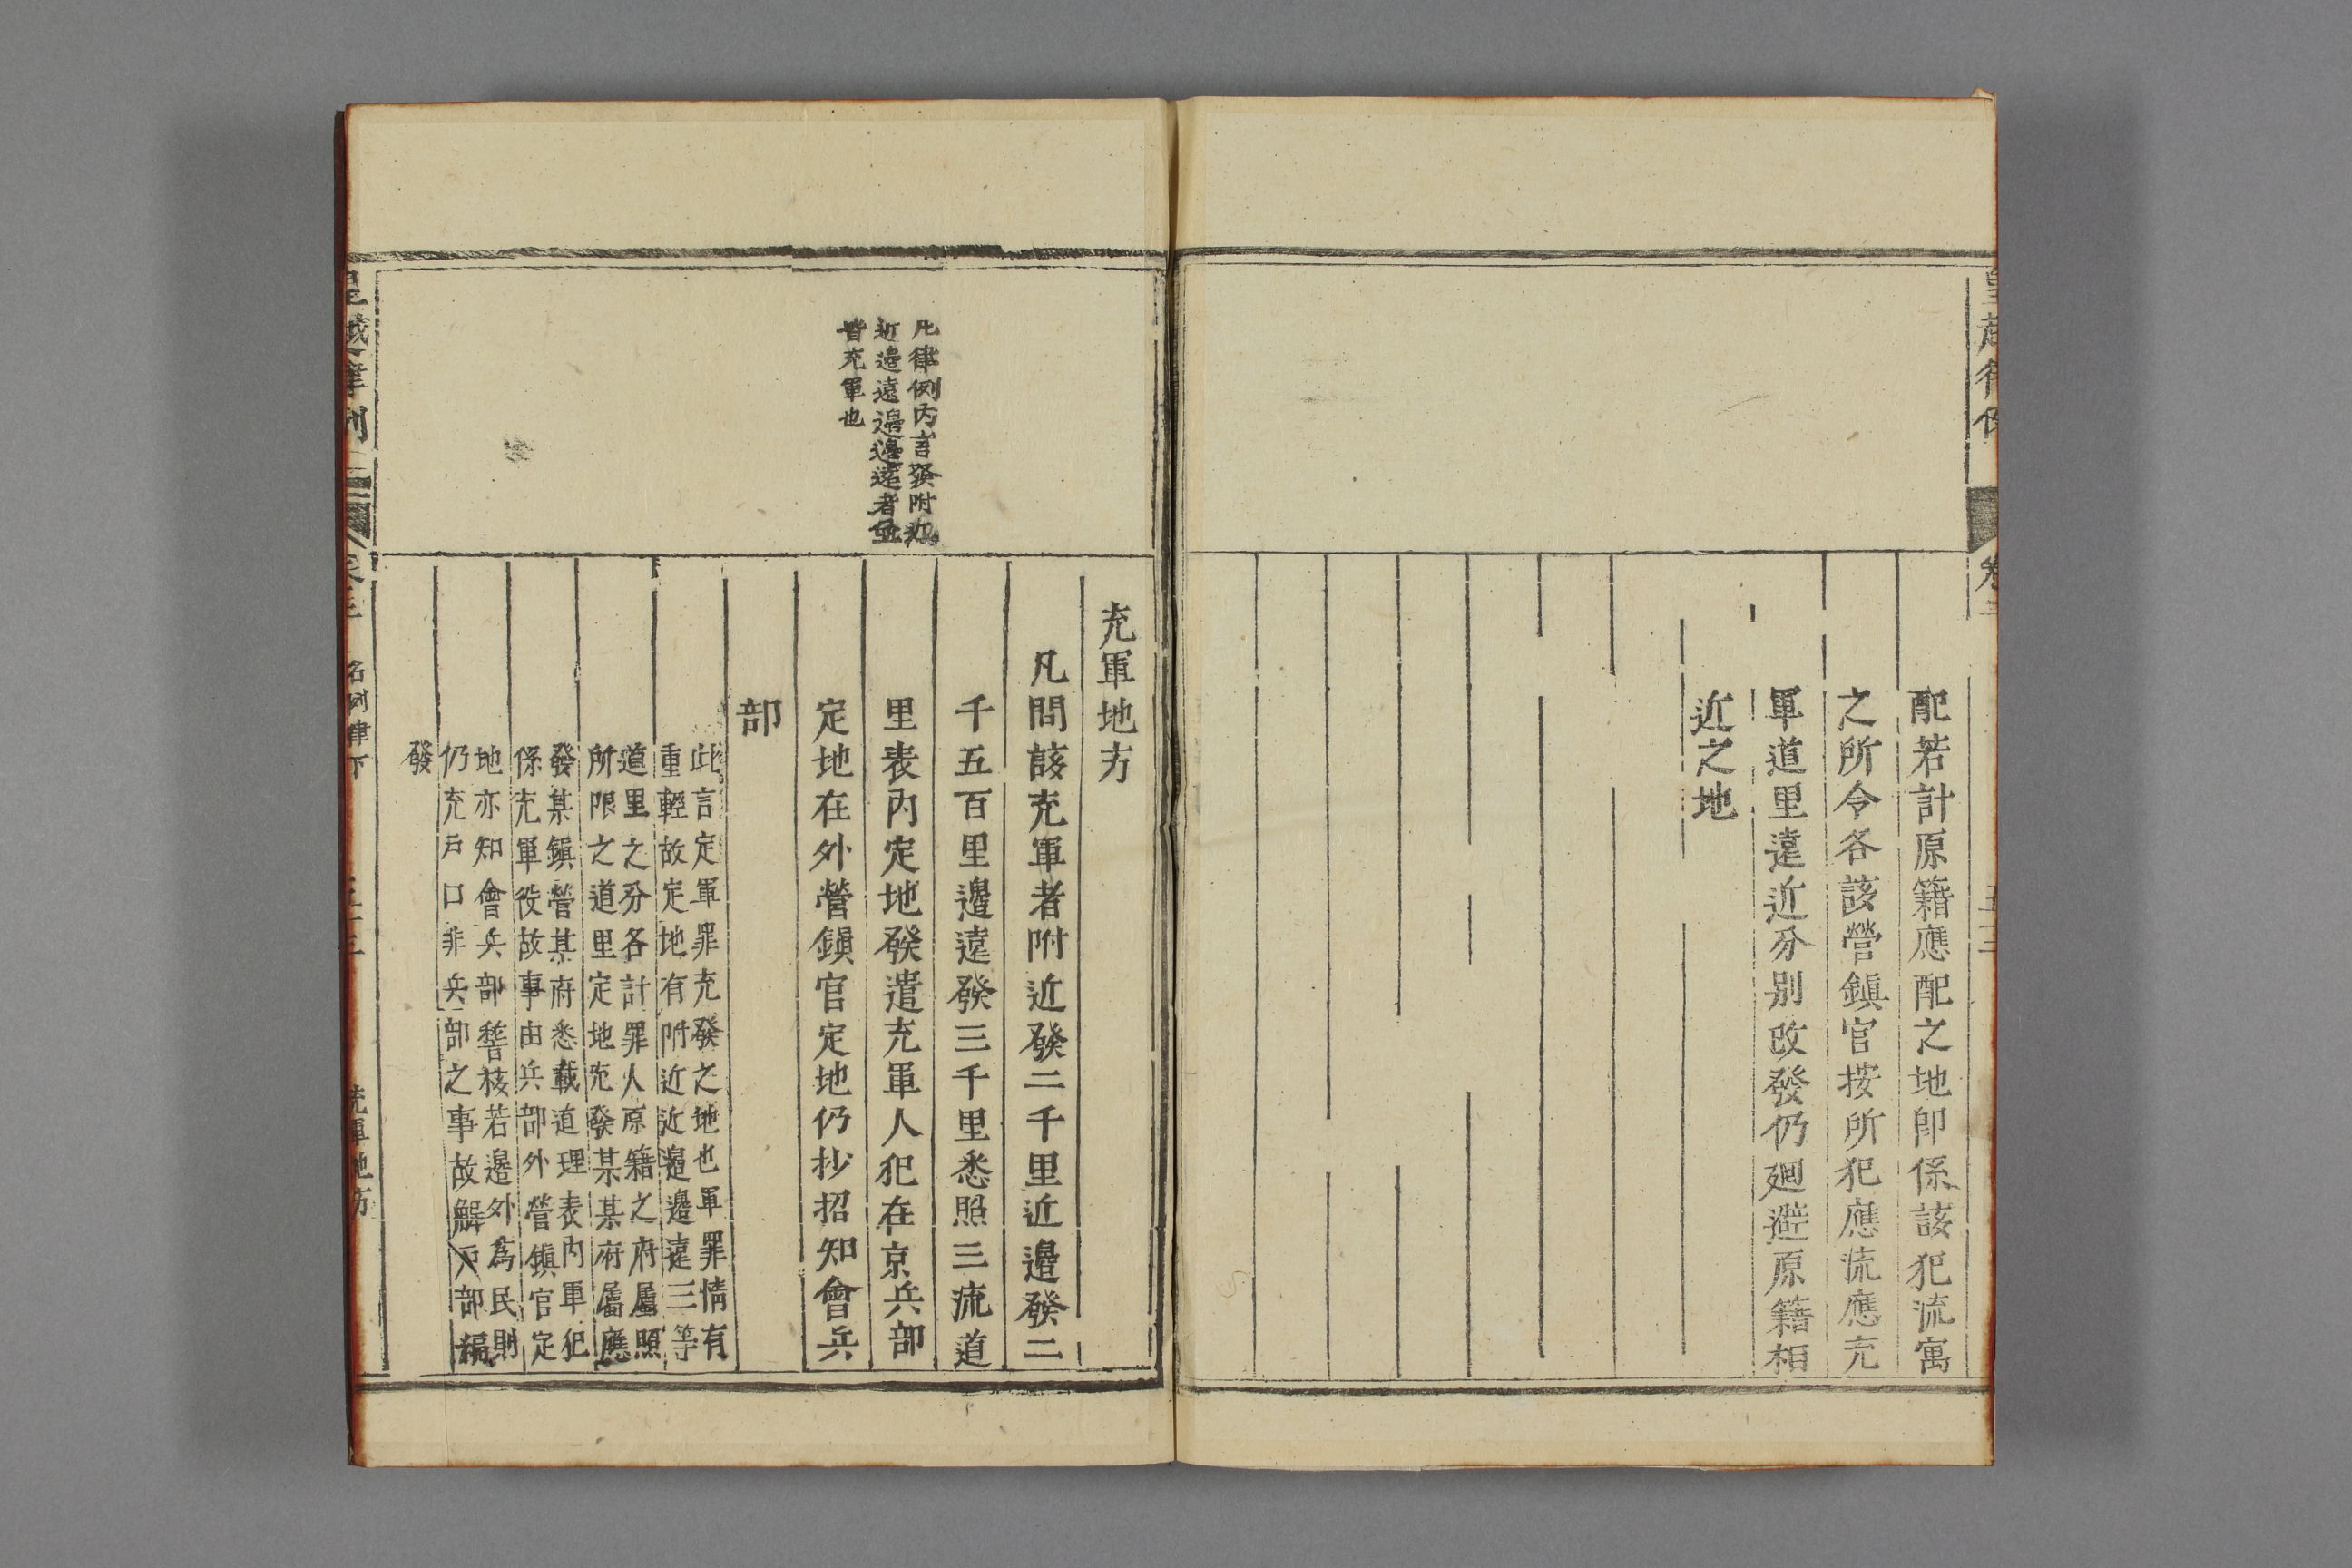 配若計原籍應配之地卽係該犯流寓
之所令各該營鎭官按所犯應流應充
軍道里遠近分别改發仍廻避原籍相
近之地
凡律例内言發附近
近邊遠邊邊遠者並
皆充軍也
充軍地方
凡問該充軍者附近發二千里近邊發二
千五百里邊遠發三千里悉照三流道
里表内定地發遣充軍人犯在京兵部
定地在外營鎭官定地仍抄招知會兵
部
此言定軍罪充發之地也軍罪情有
重輕故定地有附近近邊邊遠三等
道里之分各計罪人原籍之府屬照
所限之道里定地充發某某府屬應
發某鎭營某府悉載道理表内軍犯
係充軍役故事由兵部外營鎭官定
地亦知會兵部稽核若邊外爲民則
仍充戶口非兵部之事故解戶部編
發
皇越律例 卷三 名例律下 充軍地方